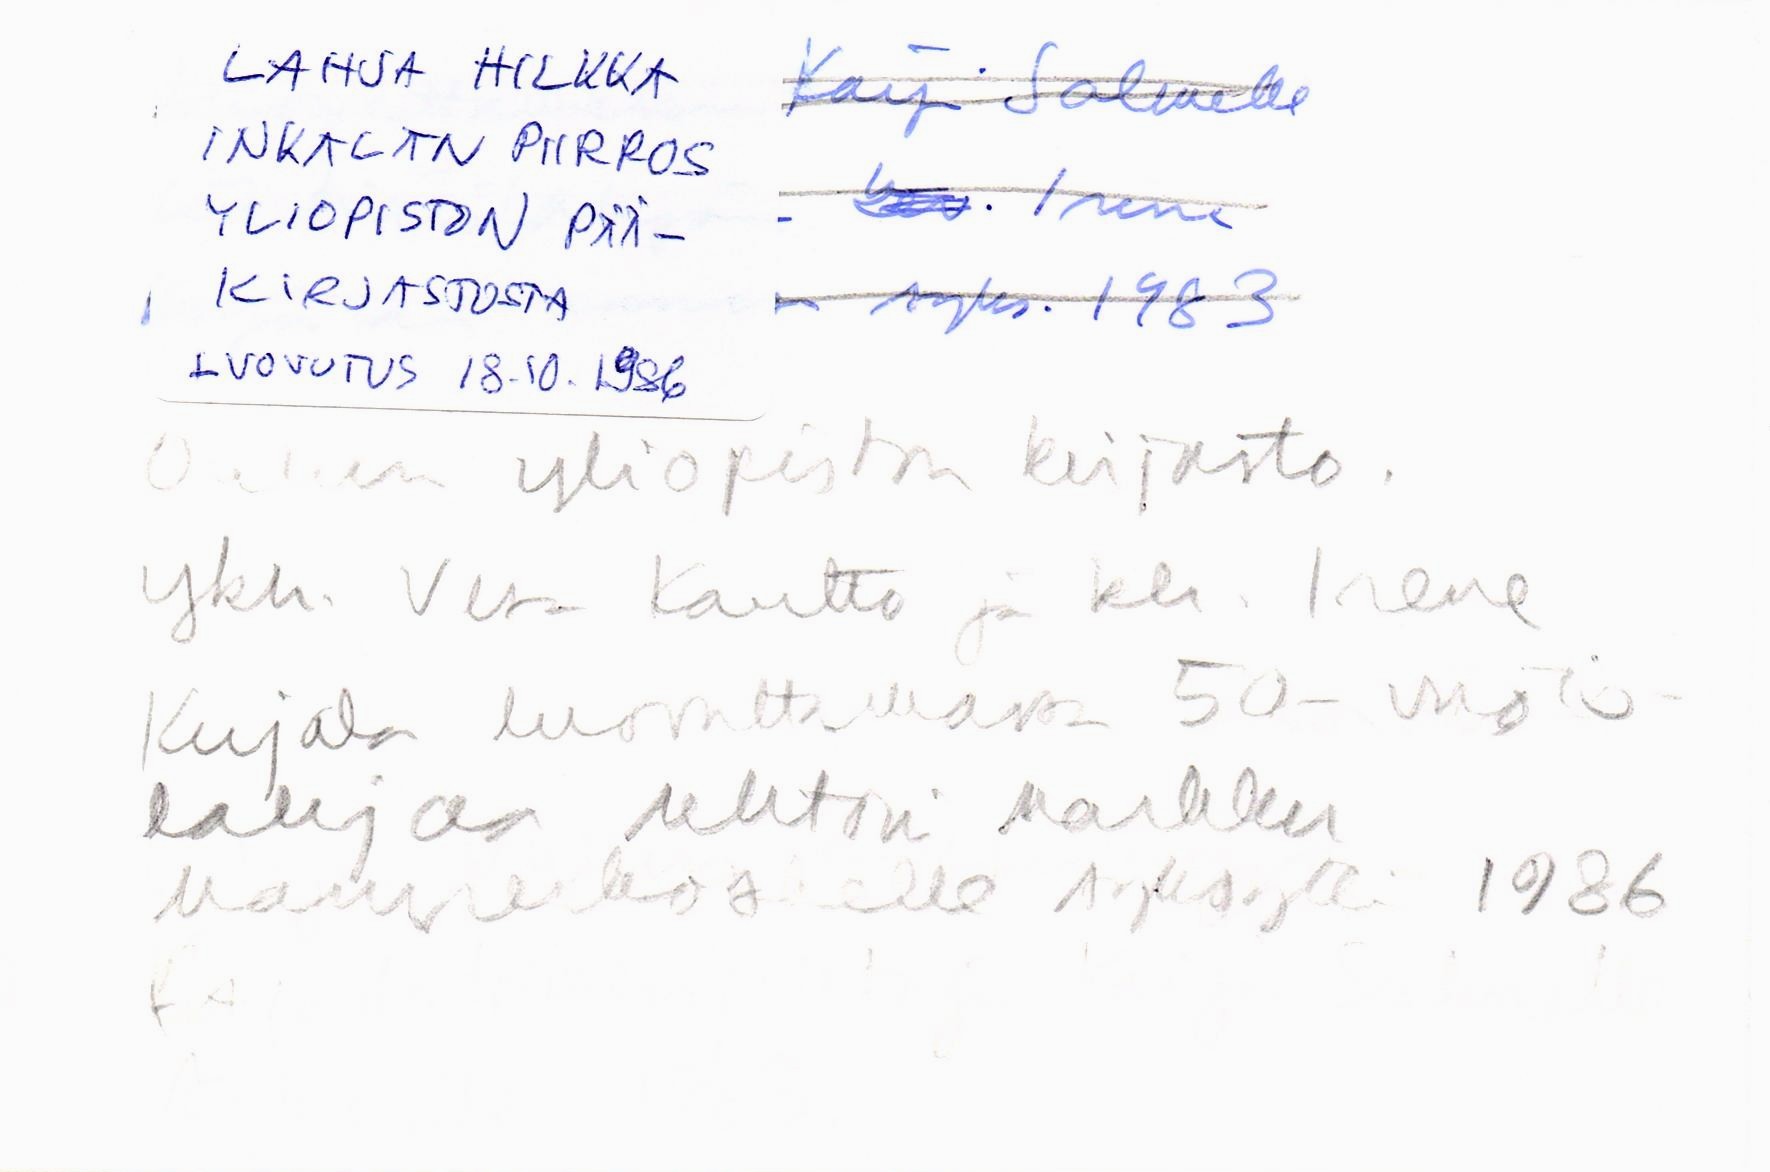 LAHJA HILKKA
INKALAN PIIRROS
YLIOPISTON PÄÄ-
KIRJASTOSTA
LUOVUTUS 18.10.1986
Salmelle
- Irene
syks. 1983
Oulun yliopiston kirjasto.
ykh. Vesa Kautto ja kh. Irene
Kujala luovuttamassa 50-vuotis-
lahjaa rehtori Markku
Mannerkoskelle syksyllä 1986